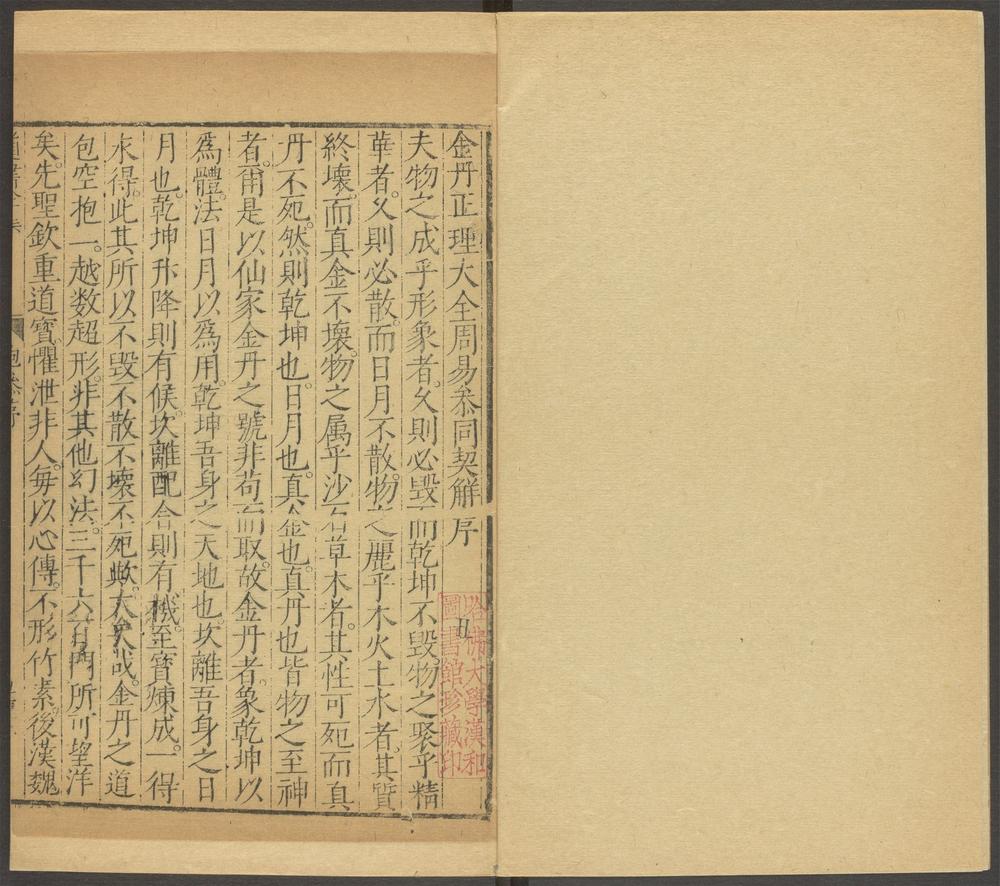 金丹正理大全周易叅同契解序
夫物之成乎形象者。久則必毀。而乾坤不毀。物之聚乎精
華者。久則必散。而日月不散。物之麗乎木火土水者。其質
終壞。而真金不壞。物之属乎沙石草木者。其性可死。而真
丹不死。然則乾坤也。日月也。真金也。真丹也。皆物之至神
者。甭是以仙家金丹之號非苟而取。故金丹者。象乾坤以
爲體。法日月以爲用。乾坤吾身之天地也。坎離吾身之日
月也。乾坤升降則有候。坎離配合則有機。至寳煉成。一得
永得。此其所以不毀不散不壞不死歟。大矣哉。金丹之道
包空抱一。越数超形。非其他幻法。三千六百門所可望洋
矣。先聖欽重道寳。懼泄非人。每以心傳。不形竹素。後漢魏
哈佛大學漢和
圖書館珍藏印